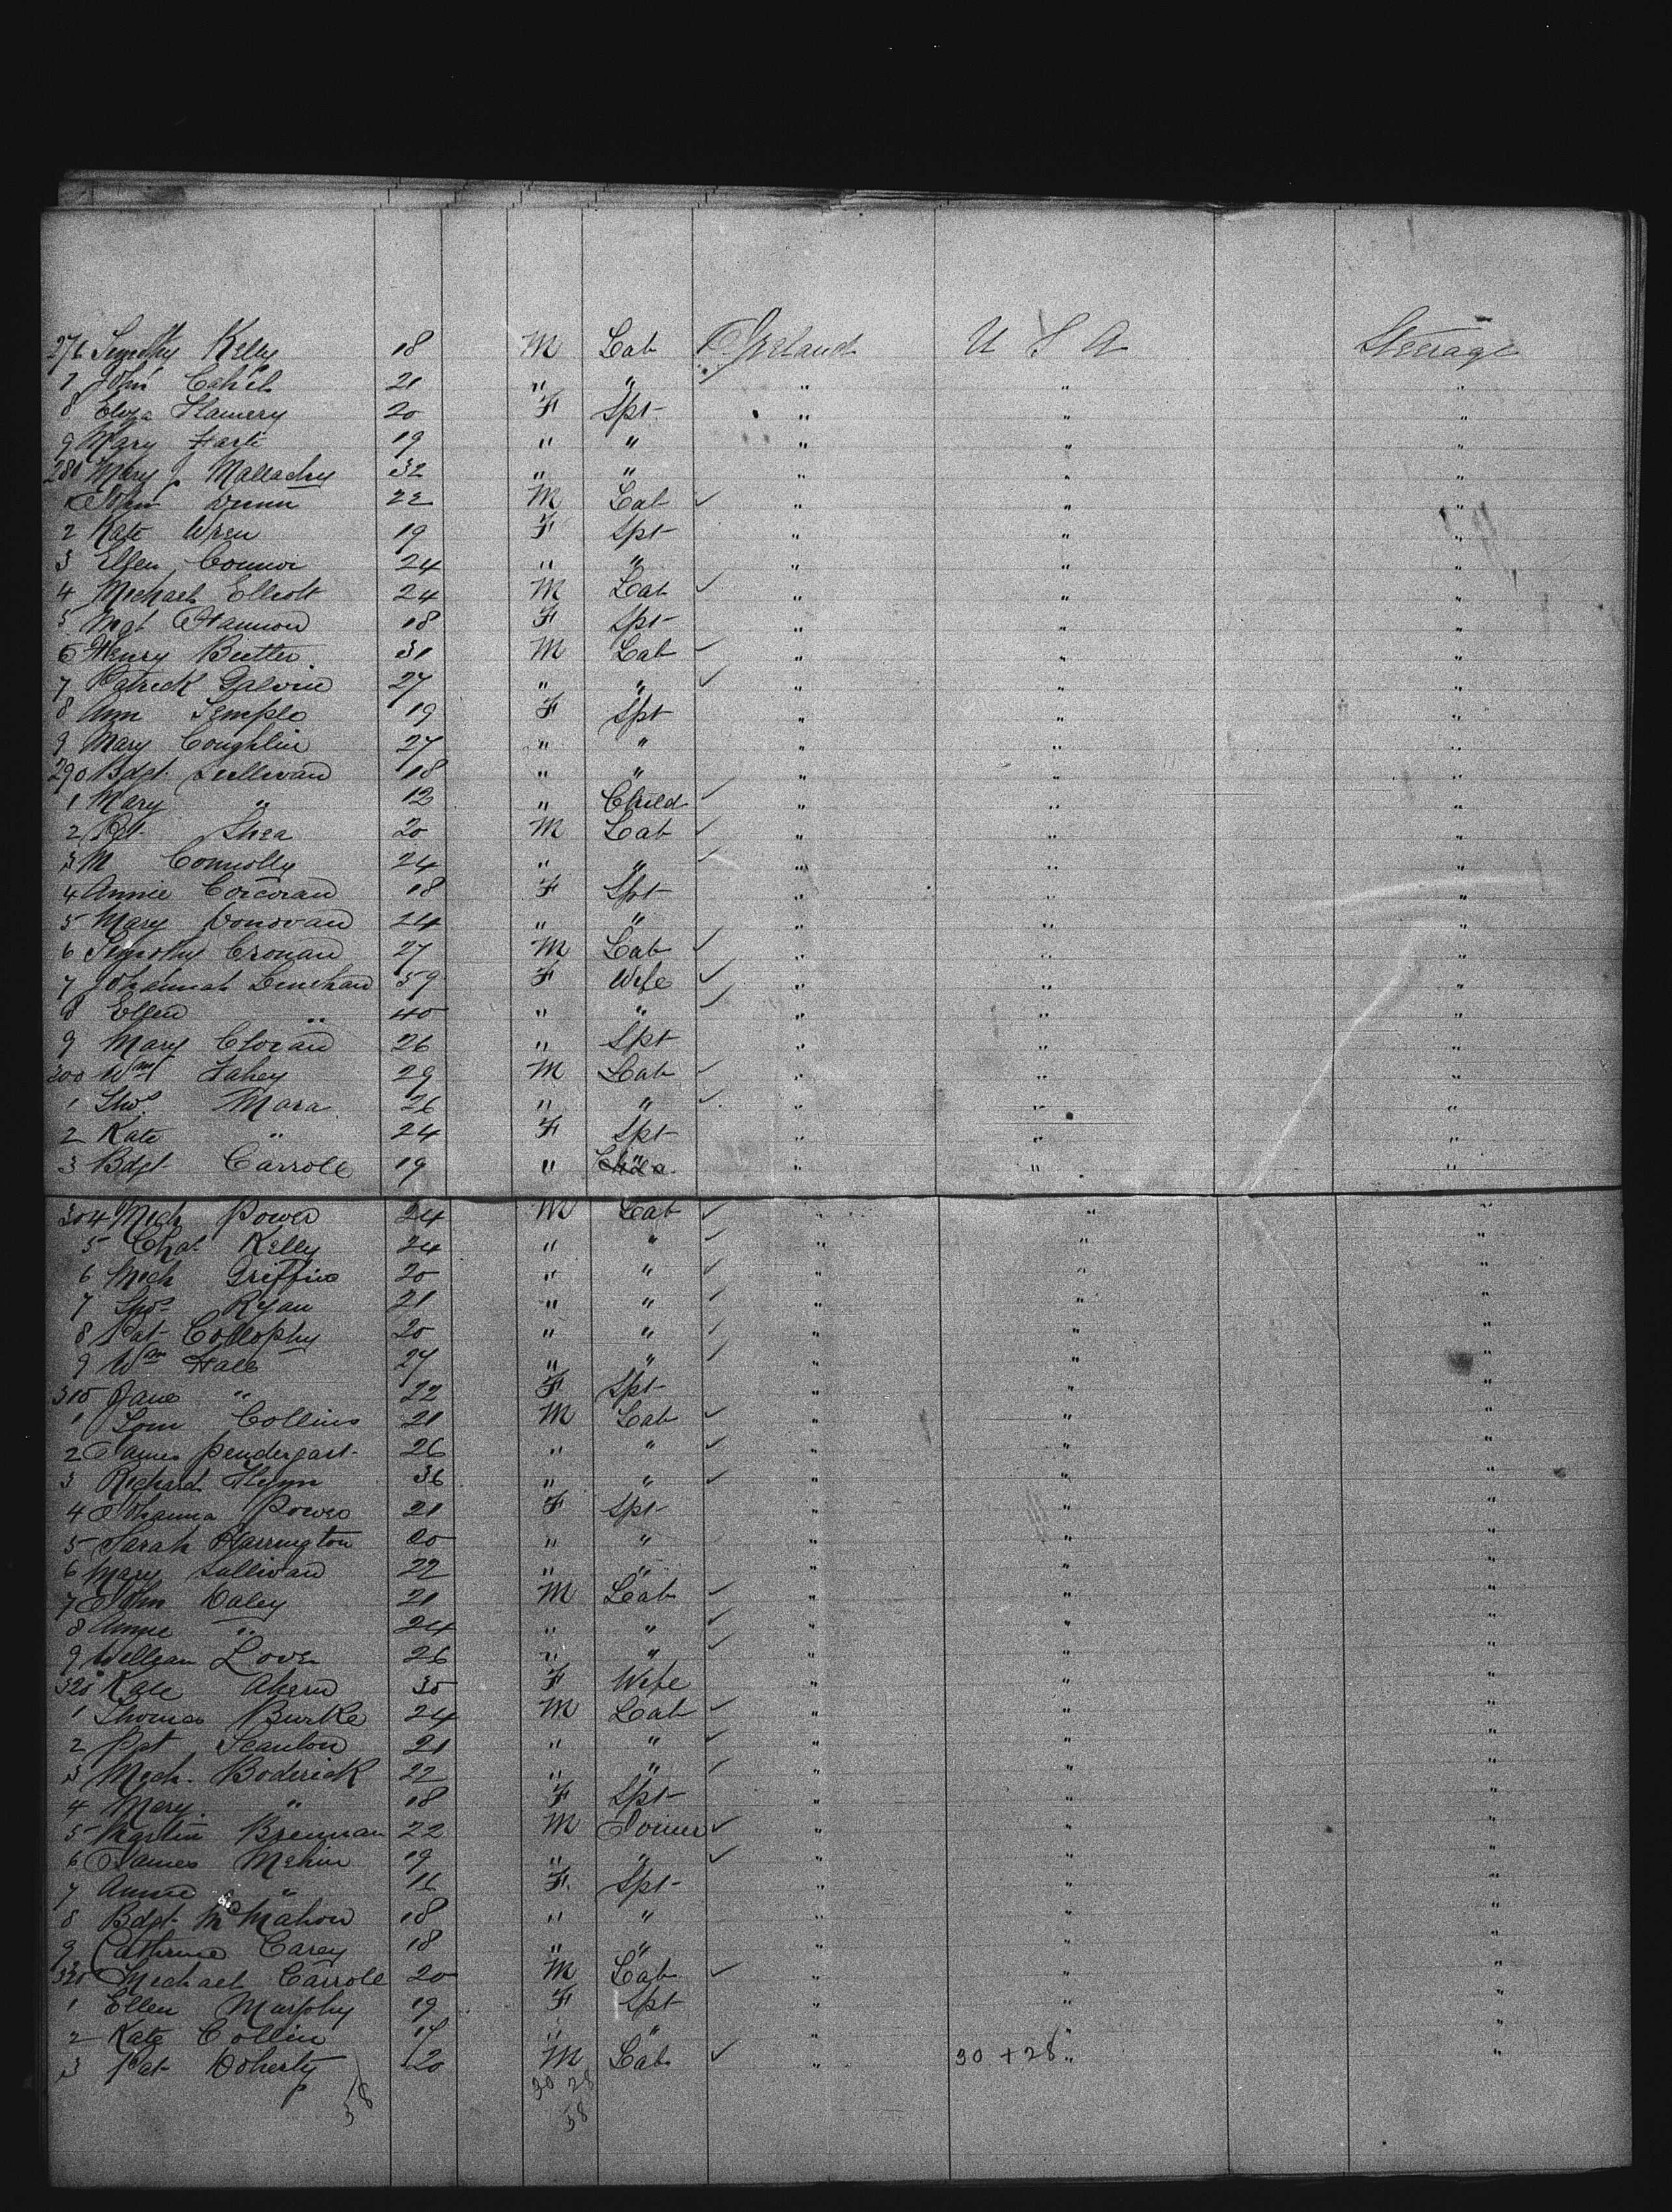 276 Timothy Kelly 18 M Lab Ireland U S A Steerage
7 John Cahill 21 " " " " "
8 Eliza Flamery 20 F Spt " " "
9 Mary Harte 19 " " " " "
280 Mary J. Mallachy 32 " " " " "
1 John Dunn 22 M Lab ✓ " " "
2 Kate Wren 19 F Spt " " "
3 Ellen Connor 24 " " " " "
4 Michael Elliott 24 M Lab ✓ " " "
5 Mgt Hannon 18 F Spt " " "
6 Henry Butler 31 M Lab ✓ " " "
7 Patrick Galvin 27 " " ✓ " " "
8 Ann Temple 19 F Spt " " "
9 Mary Coughlin 27 " " " " "
290 Bdgt Sullivan 18 " " " " "
1 Mary " 12 " Child ✓ " " "
2 Pat Shea 20 M Lab ✓ " " "
3 M Connolly 24 " " ✓ " " "
4 Annie Corcoran 18 F Spt " " "
5 Mary Donovan 24 " " " " "
6 Timothy Cronan 27 M Lab ✓ " " "
7 Johannah Lenehan 59 F Wife ✓ " " "
8 Ellen " 40 " " ✓ " " "
9 Mary Cloran 26 " Spt " " "
300 Wm Fahey 29 M Lab ✓ " " "
1 Thos. Mara 26 " " ✓ " " "
2 Kate " 24 F Spt " " "
3 Bdgt Carroll 19 " " " " "
304 Mich Power 24 M Lab ✓ " " "
5 Chas Kelly 24 " " ✓ " " "
6 Mich Griffin 20 " " ✓ " " "
7 Thos Ryan 21 " " ✓ " " "
8 Pat Collophy 20 " " ✓ " " "
9 Wm Hall 27 " " ✓ " " "
310 Jane " 22 F Spt " " "
1 Tom Collins 21 M Lab ✓ " " "
2 James Pendergast 26 " " ✓ " " "
3 Richard Flynn 36 " " ✓ " " "
4 Johanna Power 21 F Spt " " "
5 Sarah Harrington 20 " " " " "
6 Mary Sullivan 22 " " " " "
7 John Daley 21 M Lab ✓ " " "
8 Annie " 24 " " ✓ " " "
9 William Love 26 " " ✓ " " "
320 Kate Ahern 30 F Wife " " "
1 Thomas Burke 24 M Lab ✓ " " "
2 Pat Scanlon 21 " " ✓ " " "
3 Mich. Boderick 22 " " ✓ " " "
4 Mary " 18 F Spt " " "
5 Martin Brennan 22 M Joiner ✓ " " "
6 James Mehin 19 " " ✓ " " "
7 Annie " 16 F. Spt " " "
8 Bdgt McMahon 18 " " " " "
9 Cathrine Carey 18 " " " " "
330 Michael Carroll 20 M Lab ✓ " " "
1 Ellen Murphy 19 F Spt " " "
2 Kate Collin 17 " " " " "
3 Pat Doherty 20 M Lab ✓ " 30 + 28 " "
58 30 28
58